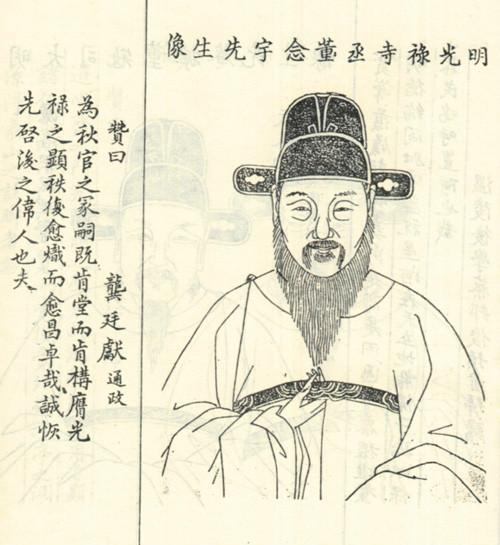 明光祿寺丞董念宇先生像
贊曰　龔廷獻通政
為秋官之冢嗣既肯堂而肯構膺光
禄之顯秩復愈熾而愈昌卓哉誠恢
先啓後之偉人也夫